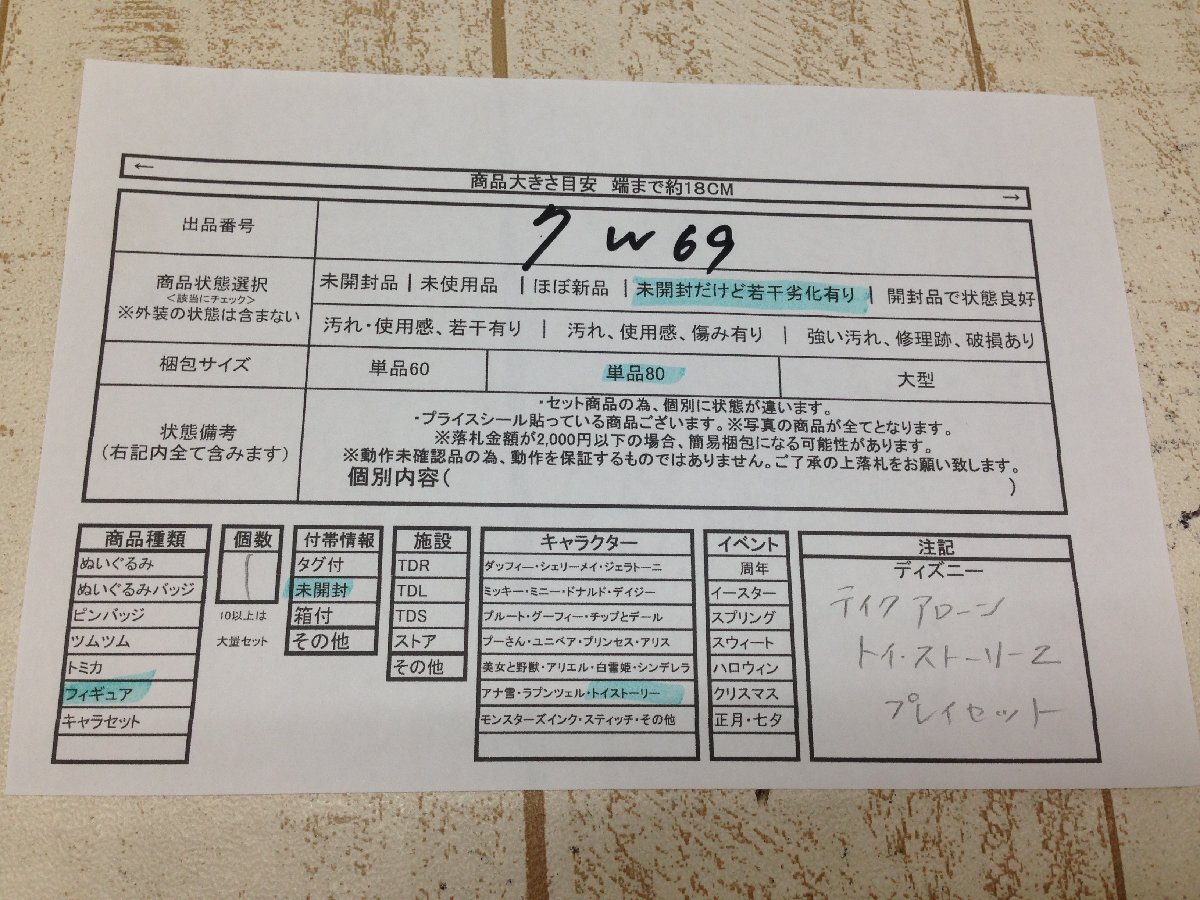 ←
商品大きさ目安　端まで約18CM
→
出品番号
ク W 69
商品状態選択
<該当にチェック>
※外装の状態は含まない
未開封品 | 未使用品 | ほぼ新品 | 未開封だけど若干劣化有り | 開封品で状態良好
汚れ・使用感、若干有り | 汚れ、使用感、傷み有り | 強い汚れ、修理跡、破損あり
梱包サイズ
単品60
単品80
大型
状態備考
(右記内全て含みます)
・セット商品の為、個別に状態が違います。
・プライスシール貼っている商品ございます。※写真の商品が全てとなります。
※落札金額が2,000円以下の場合、簡易梱包になる可能性があります。
※動作未確認品の為、動作を保証するものではありません。ご了承の上落札をお願い致します。
個別内容( )
商品種類
ぬいぐるみ
ぬいぐるみバッジ
ピンバッジ
ツムツム
トミカ
フィギュア
キャラセット
個数
1
10以上は
大量セット
付帯情報
タグ付
未開封
箱付
その他
施設
TDR
TDL
TDS
ストア
その他
キャラクター
ダッフィー・シェリーメイ・ジェラトーニ
ミッキー・ミニー・ドナルド・デイジー
プルート・グーフィー・チップとデール
プーさん・ユニベア・プリンセス・アリス
美女と野獣・アリエル・白雪姫・シンデレラ
アナ雪・ラプンツェル・トイストーリー
モンスターズインク・スティッチ・その他
イベント
周年
イースター
スプリング
スウィート
ハロウィン
クリスマス
正月・七夕
注記
ディズニー
テイクアローン
トイ・ストーリー2
プレイセット